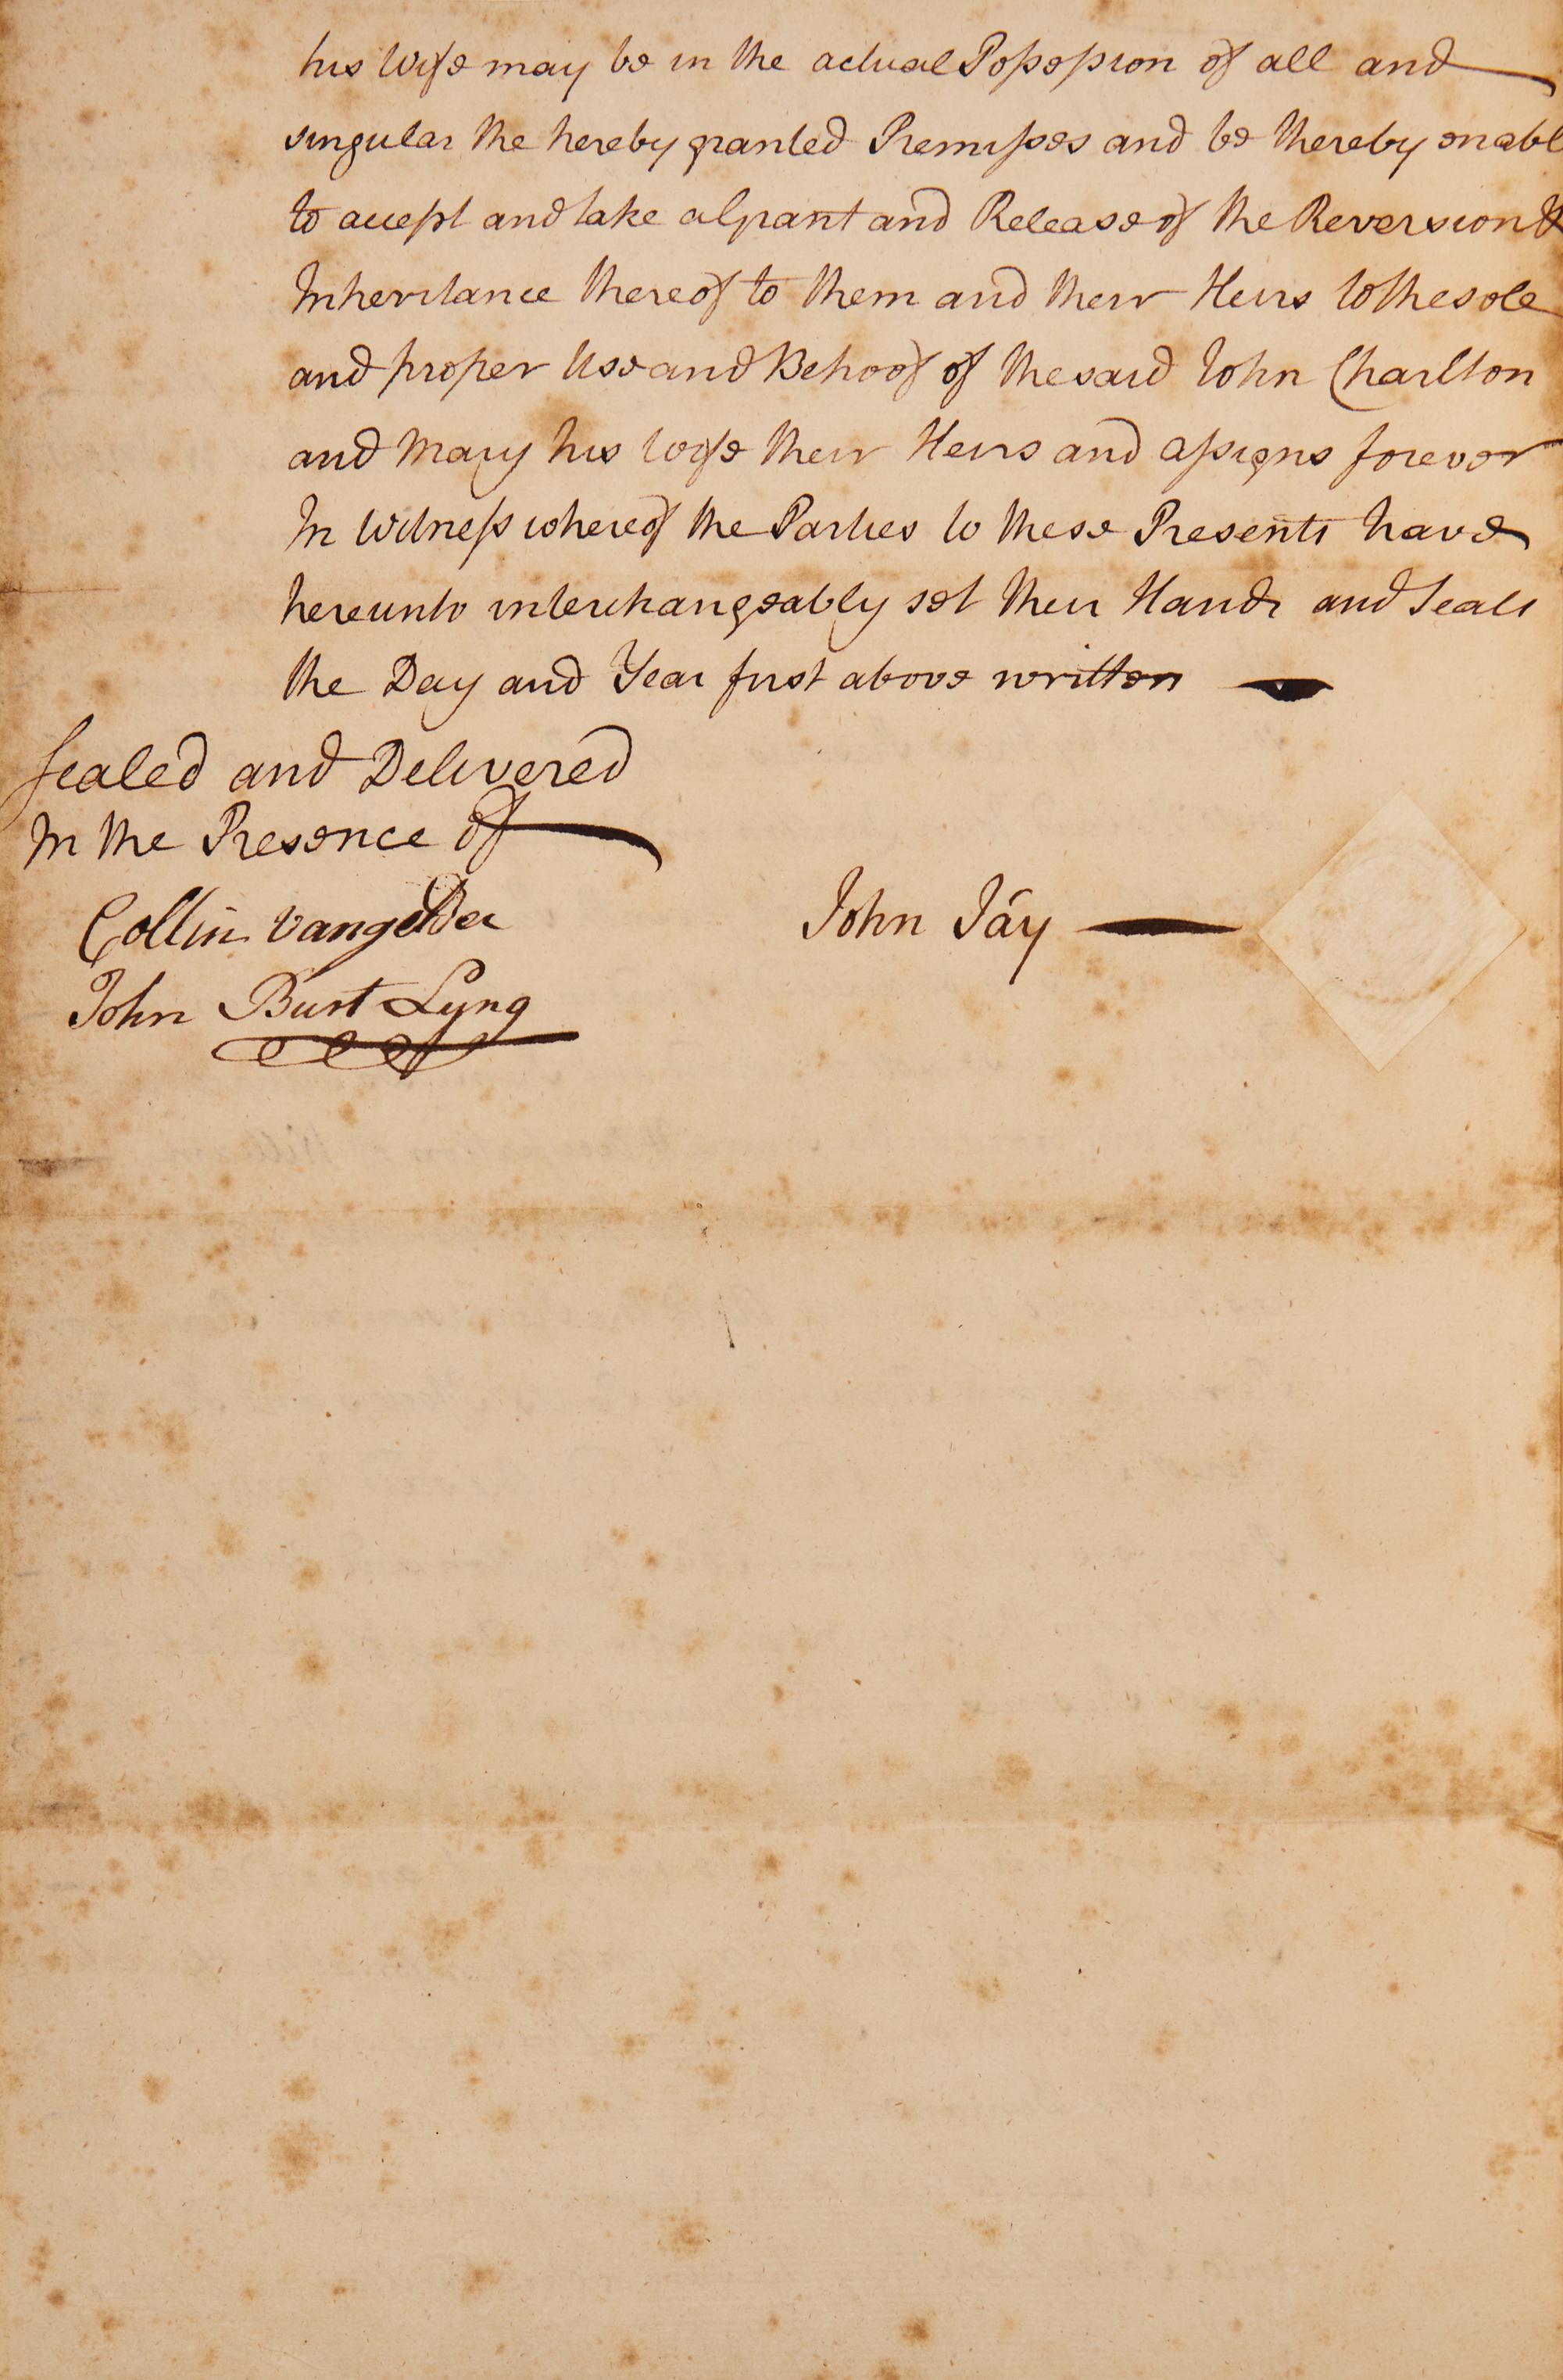 his Wife may be in the actual Possession of all and
singular the hereby granted Premisses and be thereby enabl
to accept and take a grant and Release of the Reversion &
Inheritance thereof to them and their Heirs to the sole
and proper Use and Behoof of the said John Charlton
and Mary his wife their Heirs and assigns forever
In Witness whereof the Parties to these Presents have
hereunto interchangeably set their Hands and Seals
the Day and Year first above written
Sealed and Delivered
In the Presence of
Collin Vangelder
John Burt Lyng
John Jay